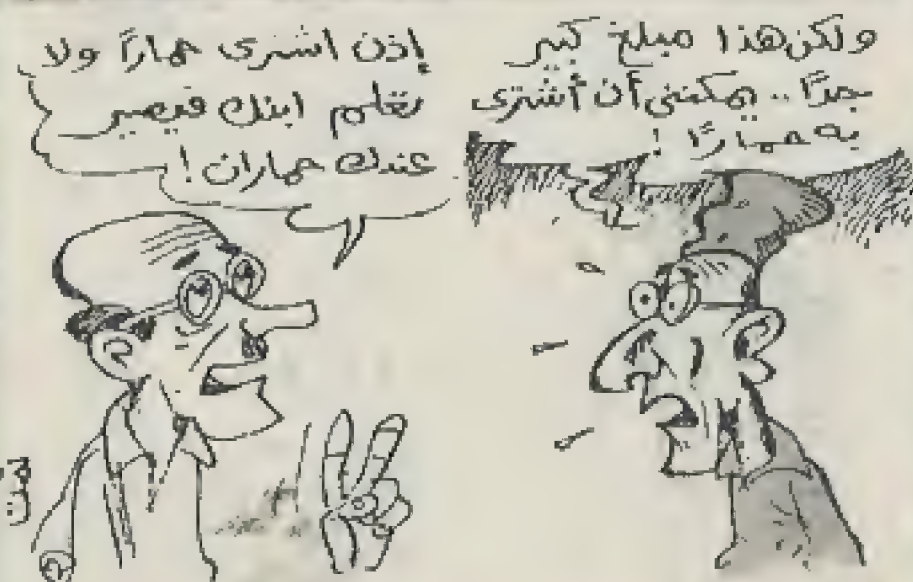 ولكن هذا مبلغ كبير
جداً .. يمكنني أن أشترى
به حماراً !
إذن اشترى حماراً ولا
تعلم ابنك فيصير
عندك حماران !